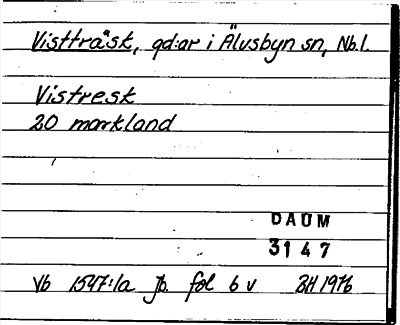 Vistträsk, gd:ar i Älvsbyn sn, Nb.l.
Vistresk
20 markland
DAUM
3147
Vb 1547:1a Jb. fol 6 v BH 1976